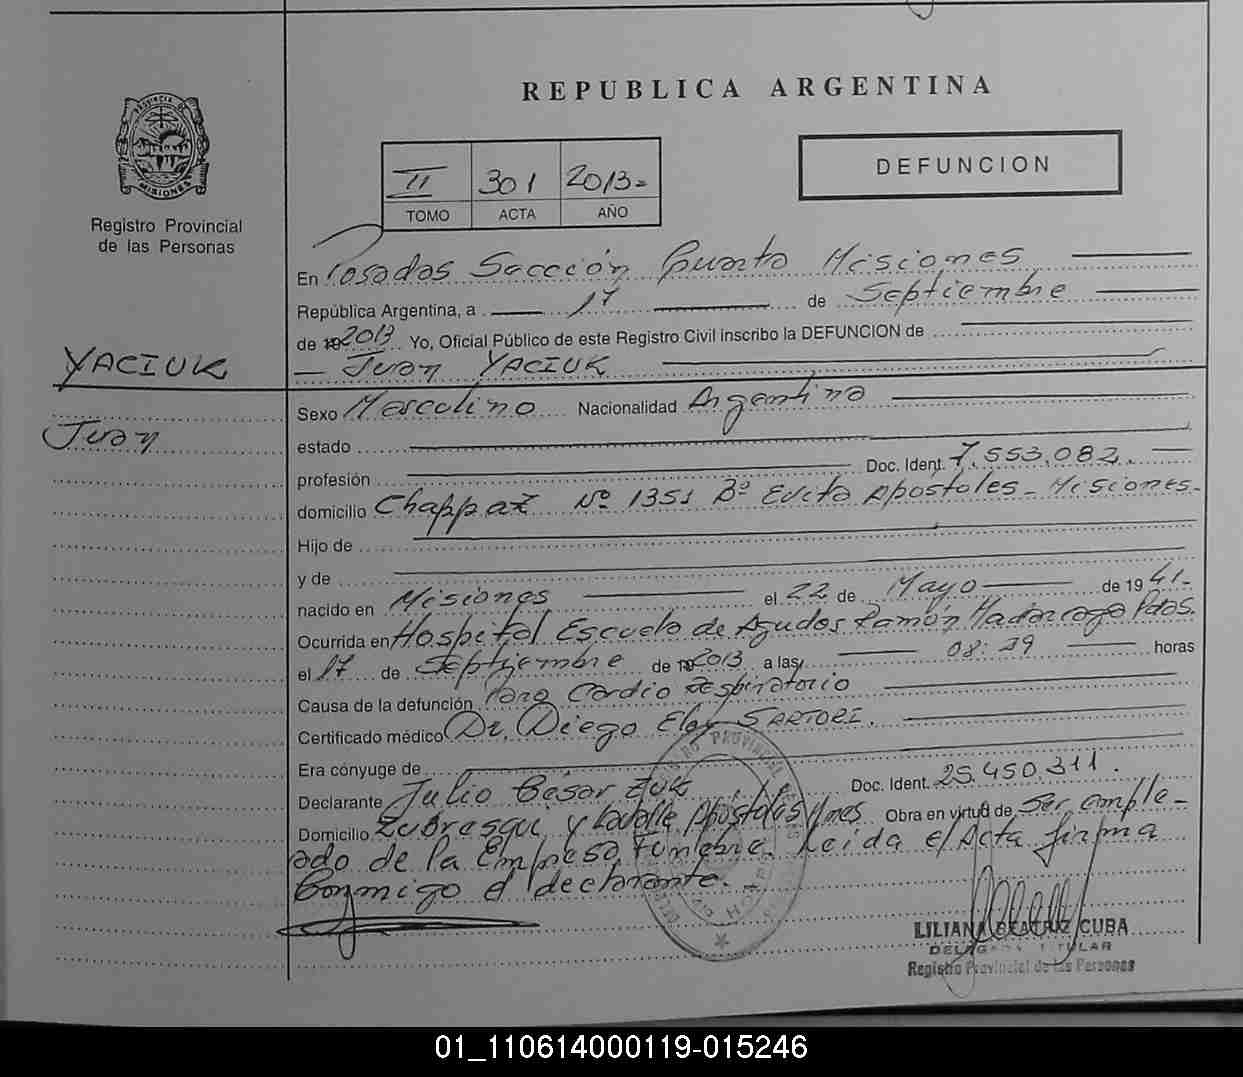 REPUBLICA ARGENTINA
PROVINCIA DE
MISIONES
Registro Provincial
de las Personas
II 301 2013
TOMO ACTA AÑO
DEFUNCION
En Posadas Sección Cuarta Misiones
República Argentina, a 17 de Septiembre
de 2013 Yo, Oficial Público de este Registro Civil inscribo la DEFUNCION de
YACIUK
Juan YACIUK
Juan
Sexo Masculino Nacionalidad Argentina
estado
profesión Doc. Ident. 7.553.082.
domicilio Chappaz Nº 1351 Bº Evita Apóstoles - Misiones.
Hijo de
y de
nacido en Misiones el 22 de Mayo de 1941.
Ocurrida en Hospital Escuela de Agudos Ramón Madariaga Pdas.
el 17 de Septiembre de 2013 a las 08:39 horas
Causa de la defunción Paro Cardio Respiratorio
Certificado médico Dr. Diego Eloy SARTORI.
Era cónyuge de
Declarante Julio César Zuk Doc. Ident. 25.450.311.
Domicilio y Lavalle Apóstoles Mnes Obra en virtud de Ser emple-
ado de la Empresa Funebre. Leida el Acta firma
Conmigo el declarante.
LILIANA BEATRIZ CUBA
DELEGADA TITULAR
Registro Provincial de las Personas
01_110614000119-015246